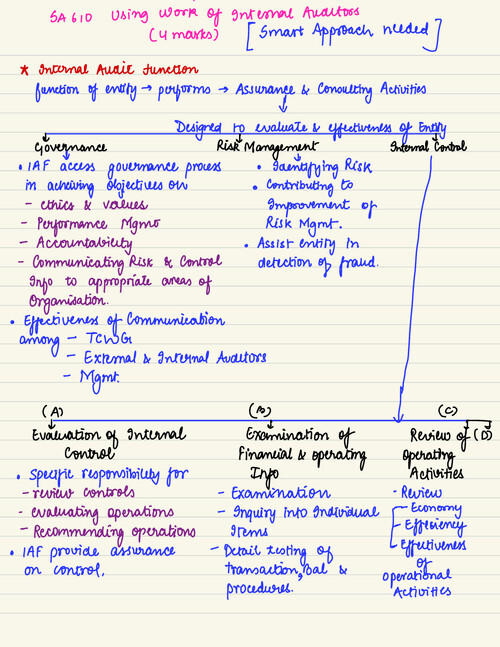 SA 610 Using Work of Internal Auditors
(4 marks) [Smart Approach needed]
* Internal Audit Function
function of entity → performs → Assurance & Consulting Activities
Designed to evaluate & effectiveness of Entity
Governance
• IAF access governance process
in achieving objectives on
- ethics & values
- Performance Mgmt
- Accountability
- Communicating Risk & Control
Info to appropriate areas of
Organisation.
• Effectiveness of Communication
among - TCWG
- External & Internal Auditors
- Mgmt.
Risk Management
• Identifying Risk
• Contributing to
Improvement of
Risk Mgmt.
• Assist entity in
detection of fraud.
Internal Control
(A)
Evaluation of Internal
Control
• Specific responsibility for
- review controls
- evaluating operations
- Recommending operations
• IAF provide assurance
on control.
(B)
Examination of
Financial & operating
Info
- Examination
- Inquiry into Individual
Items
- Detail testing of
transaction, bal &
procedures.
(C)
Review of
Operating
Activities
- Review
- Economy
- Efficiency
- Effectiveness
of
operational
Activities
(D)